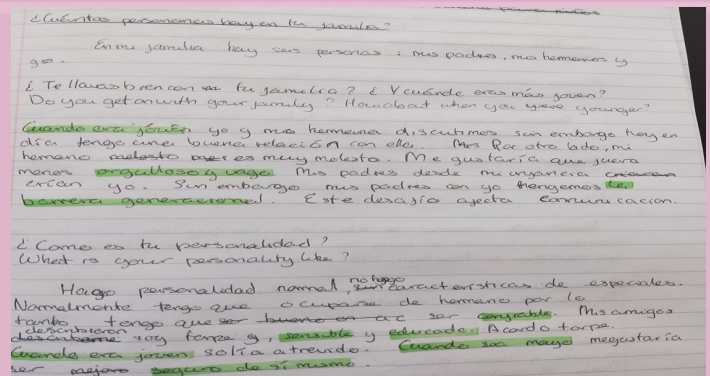 ¿Cuántas personas hay en tu familia?
En mi familia hay seis personas : mis padres, mis hermanos y
yo.
¿ Te llevas bien con tu familia ? ¿ Y cuándo eras más joven?
Do you get on with your family ? How about when you were younger?
Cuando era jóven yo y mis hermana discutimos sin embargo hoy en
día tengo una buena relación con ella. Por otro lado, mi
hermano molesto es muy molesto. Me gustaría que fuera
menos orgulloso y vago. Mis padres desde mi
erían yo. Sin embargo mis padres con yo tengemos la
barrera generacional. Este desafío afecta comunicacion.
¿ Como es tu personalidad ?
What is your personality like ?
Hago personalidad normal, no hago características de especiales.
Normalmente tengo que ocuparse de hermano por lo
tanto tengo que ser ser confiable. Mis amigos
describieron soy y, sensible y educado. A torpe.
Cuando era joven solía atrevido. Cuando sea mayo megustaría
ser mejoro seguro de sí mismo.